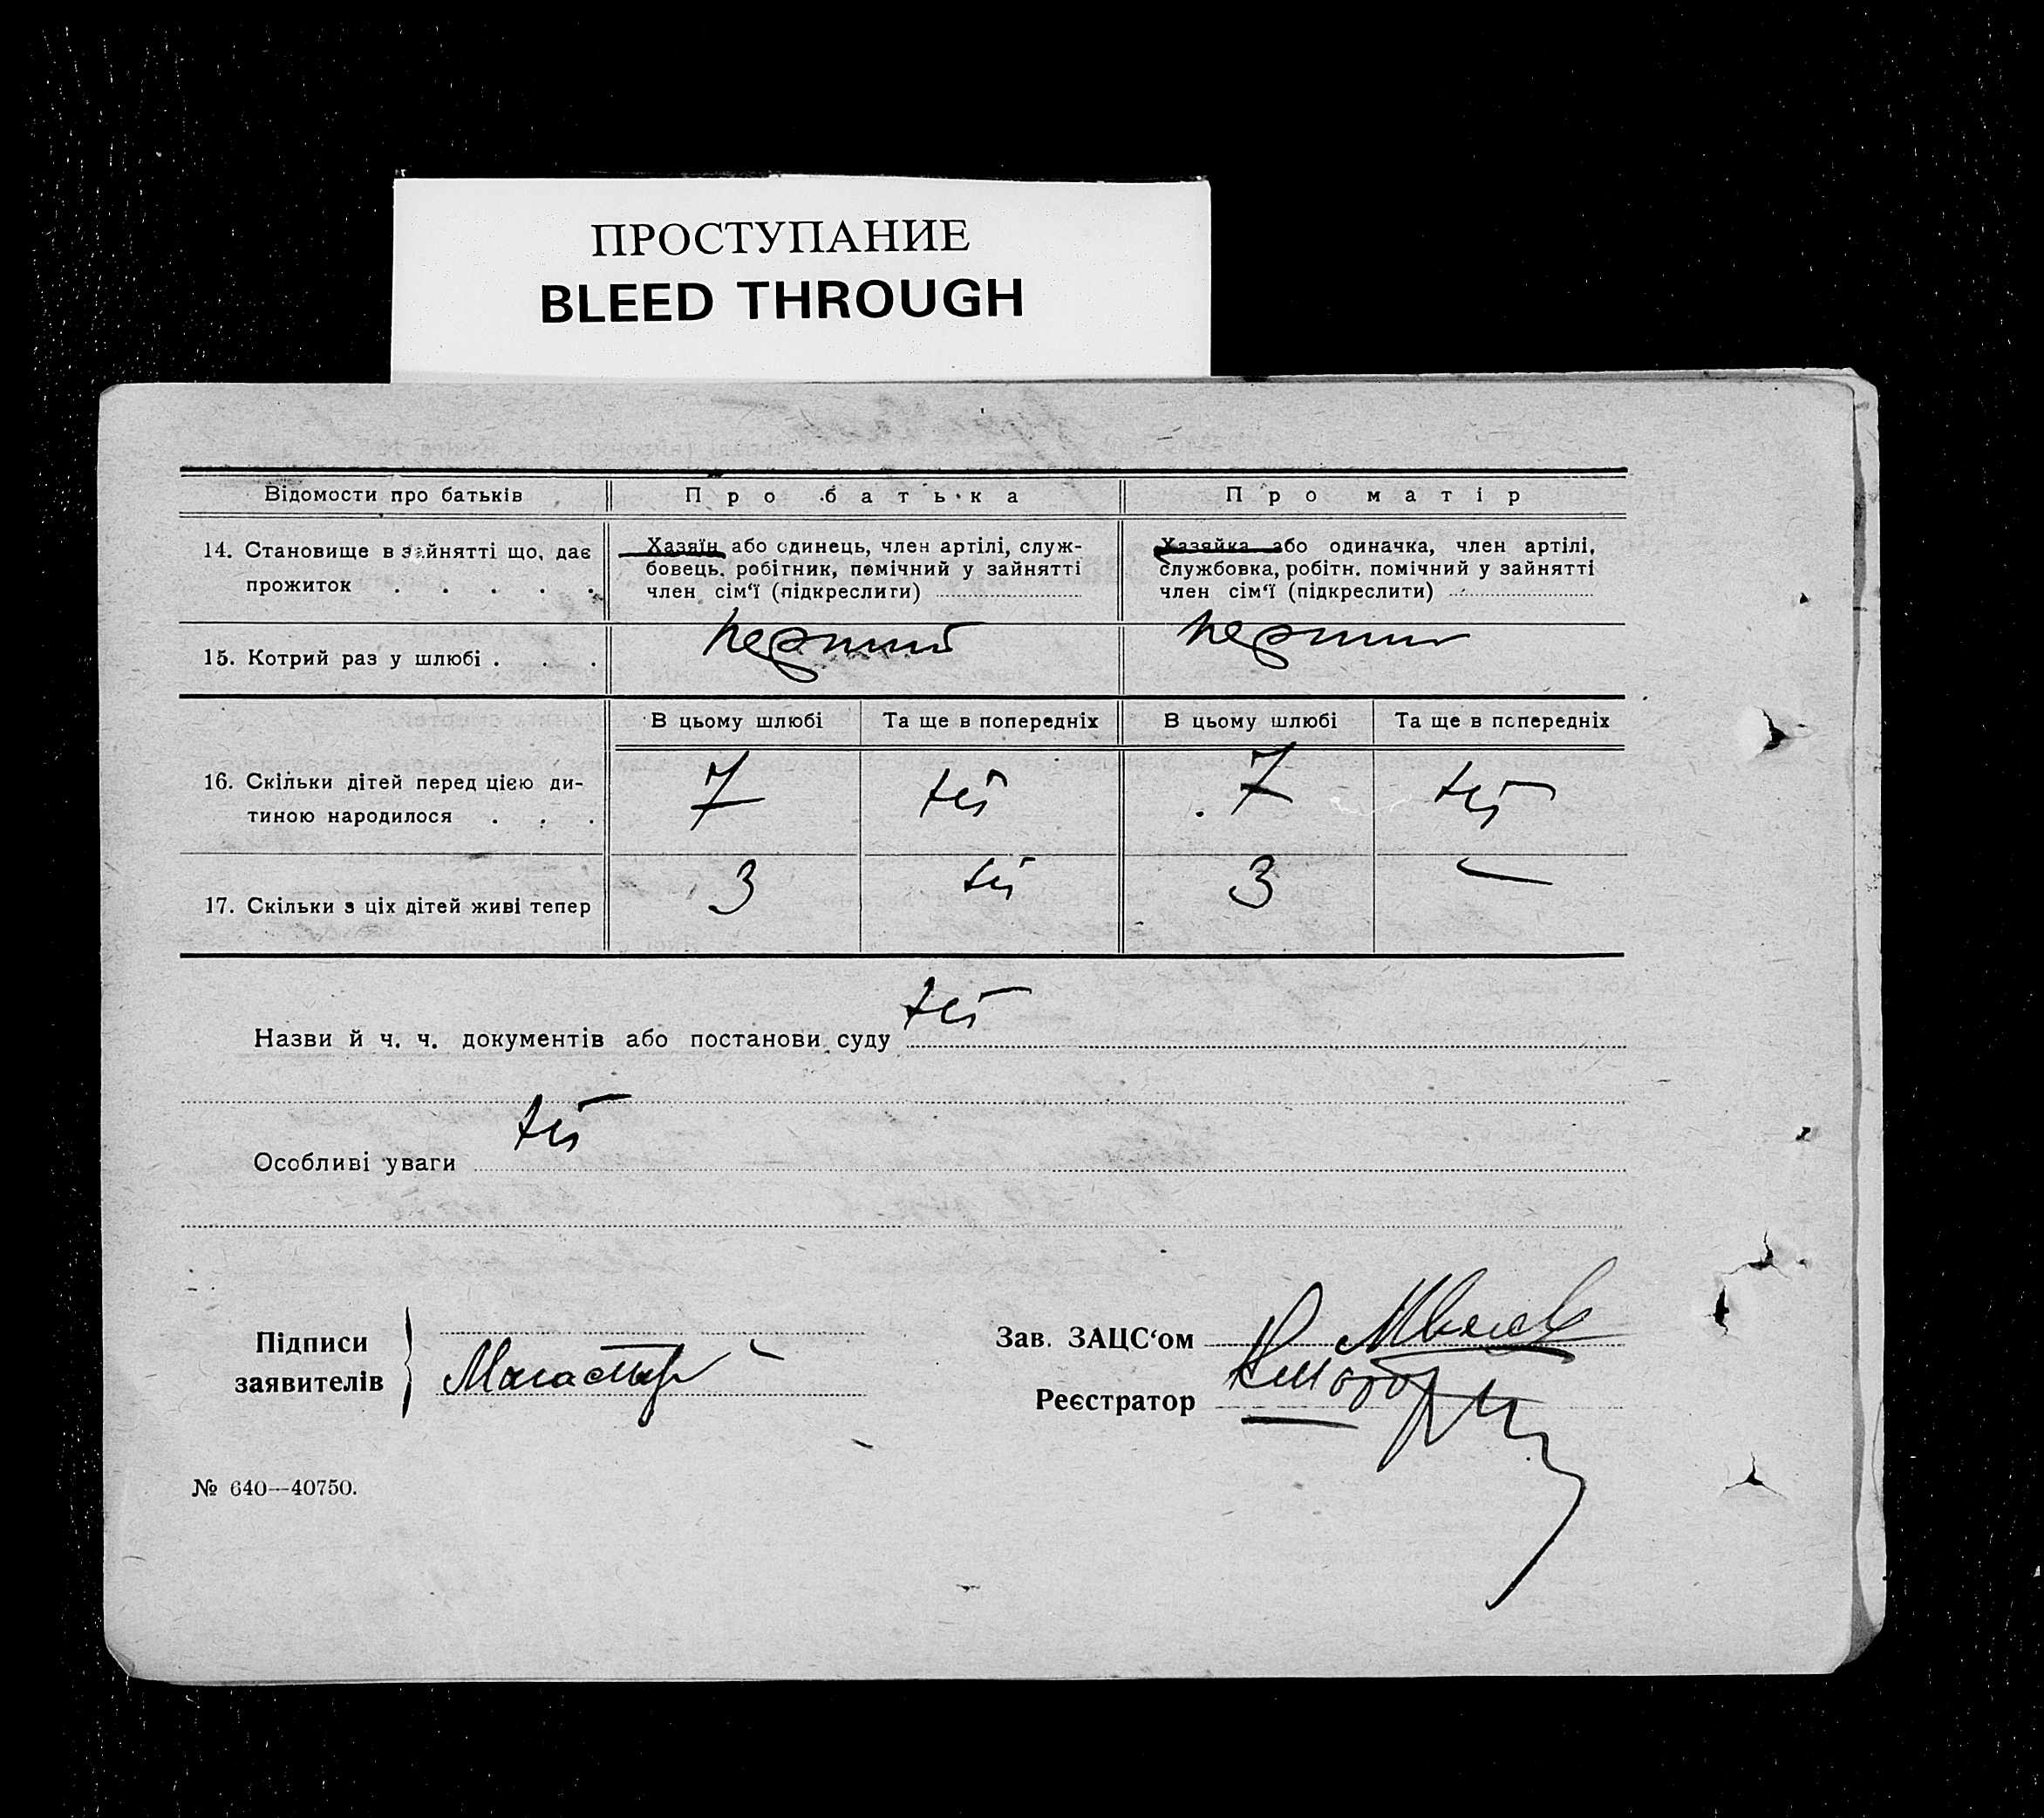 ПРОСТУПАНИЕ
BLEED THROUGH
Відомости про батьків
Про батька
Про матір
14. Становище в зайнятті що, дає
прожиток . . . . .
Хазяїн або одинець, член артілі, служ-
бовець, робітник, помічний у зайнятті
член сім‘ї (підкреслити)
Хазяйка або одиначка, член артілі,
службовка, робітн. помічний у зайнятті
член сім‘ї (підкреслити)
15. Котрий раз у шлюбі . . .
перший
перший
В цьому шлюбі
Та ще в попередніх
В цьому шлюбі
Та ще в попередніх
16. Скільки дітей перед цією ди-
тиною народилося . . .
7
7
17. Скільки з ціх дітей живі тепер
3
3
Назви й ч. ч. документів або постанови суду
Особливі уваги
Підписи
заявителів
Зав. ЗАЦС‘ом
Реєстратор
№ 640—40750.